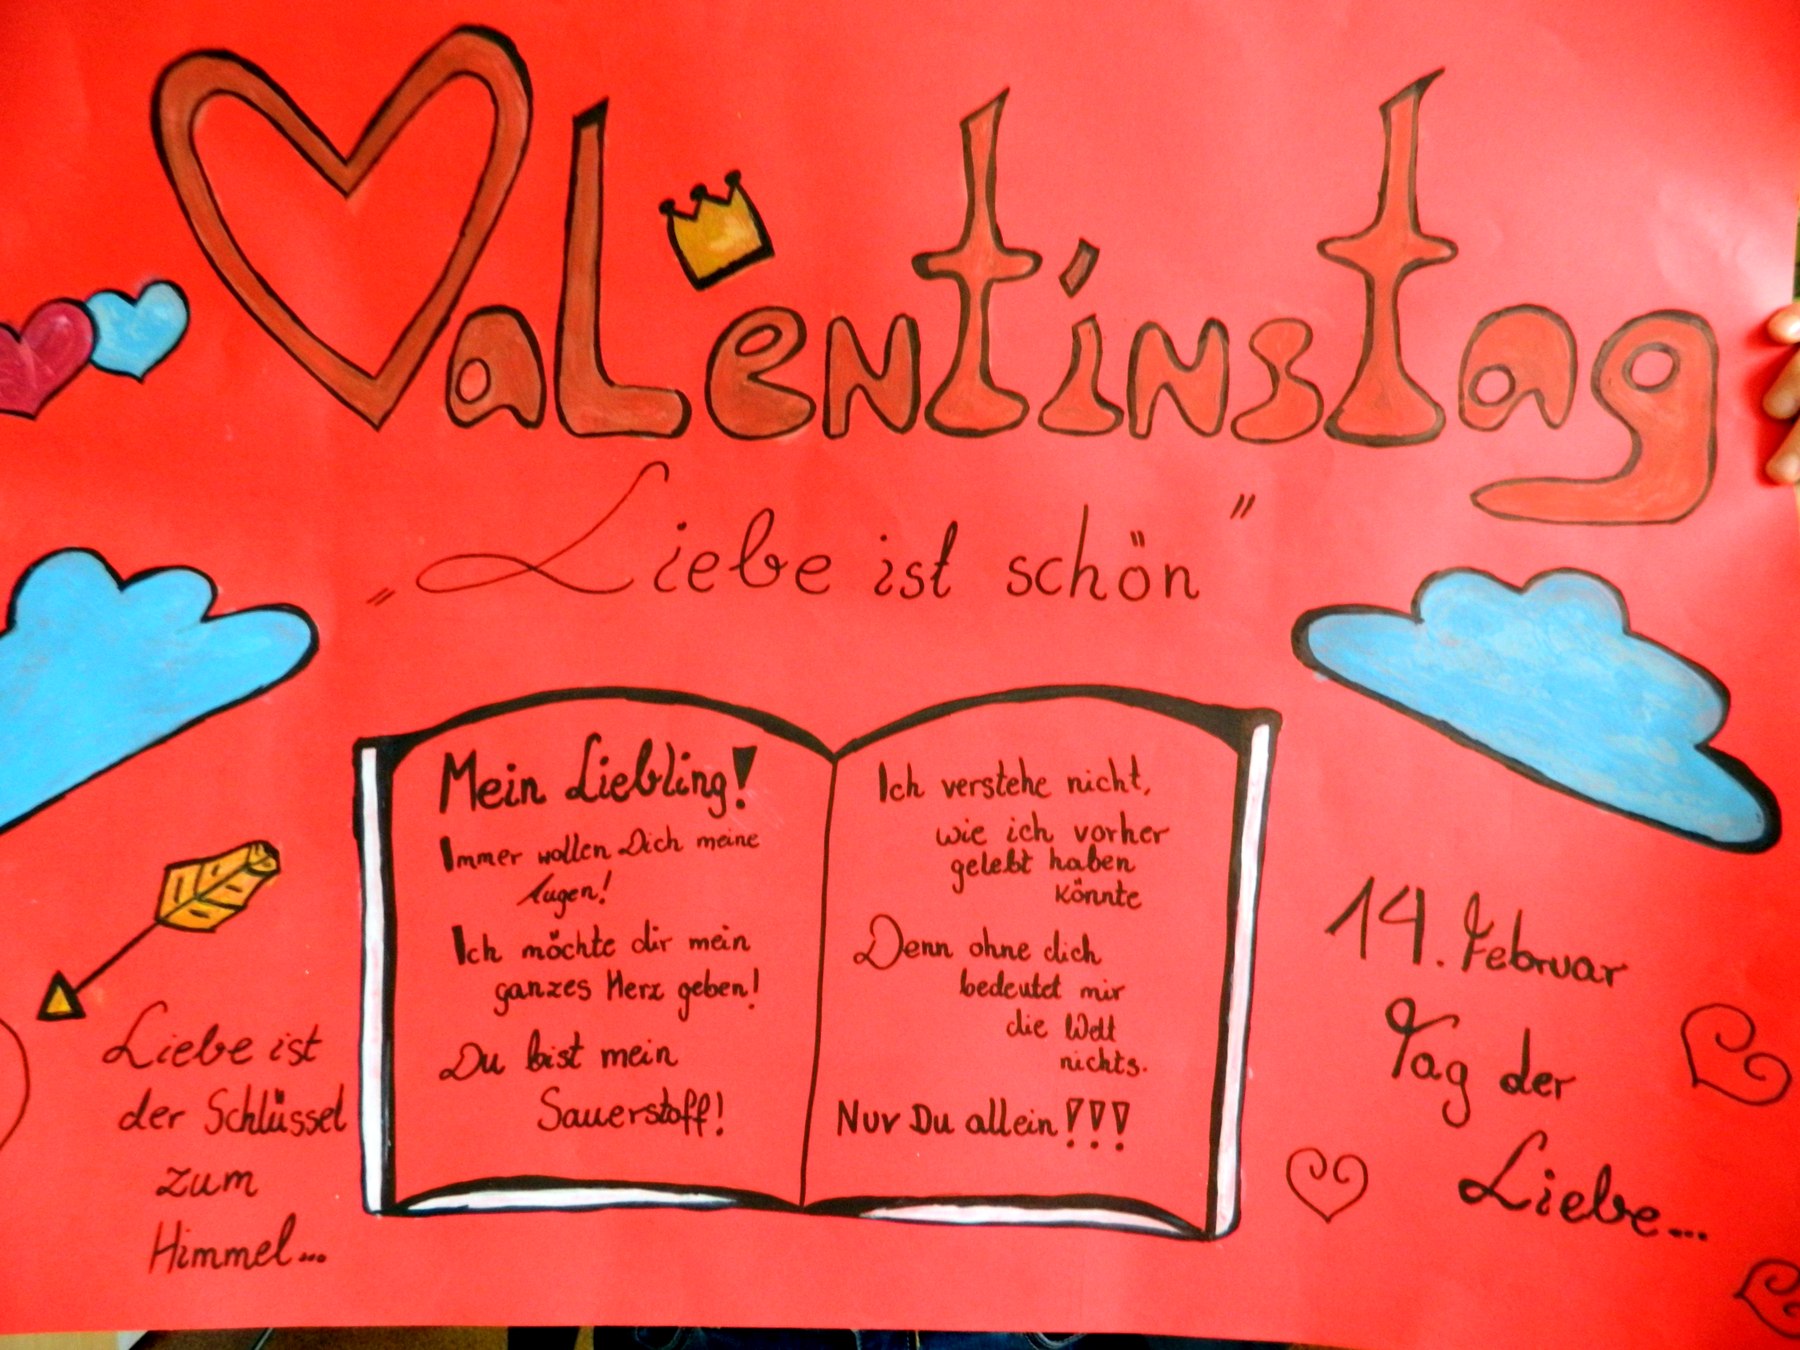 Valentinstag
„Liebe ist schön"
Mein Liebling!
Immer wollen Dich meine
Augen!
Ich möchte dir mein
ganzes Herz geben!
Du bist mein
Sauerstoff!
Ich verstehe nicht,
wie ich vorher
gelebt haben
könnte
Denn ohne dich
bedeutet mir
die Welt
nichts.
Nur Du allein!!!
Liebe ist
der Schlüssel
zum
Himmel...
14. Februar
Tag der
Liebe...